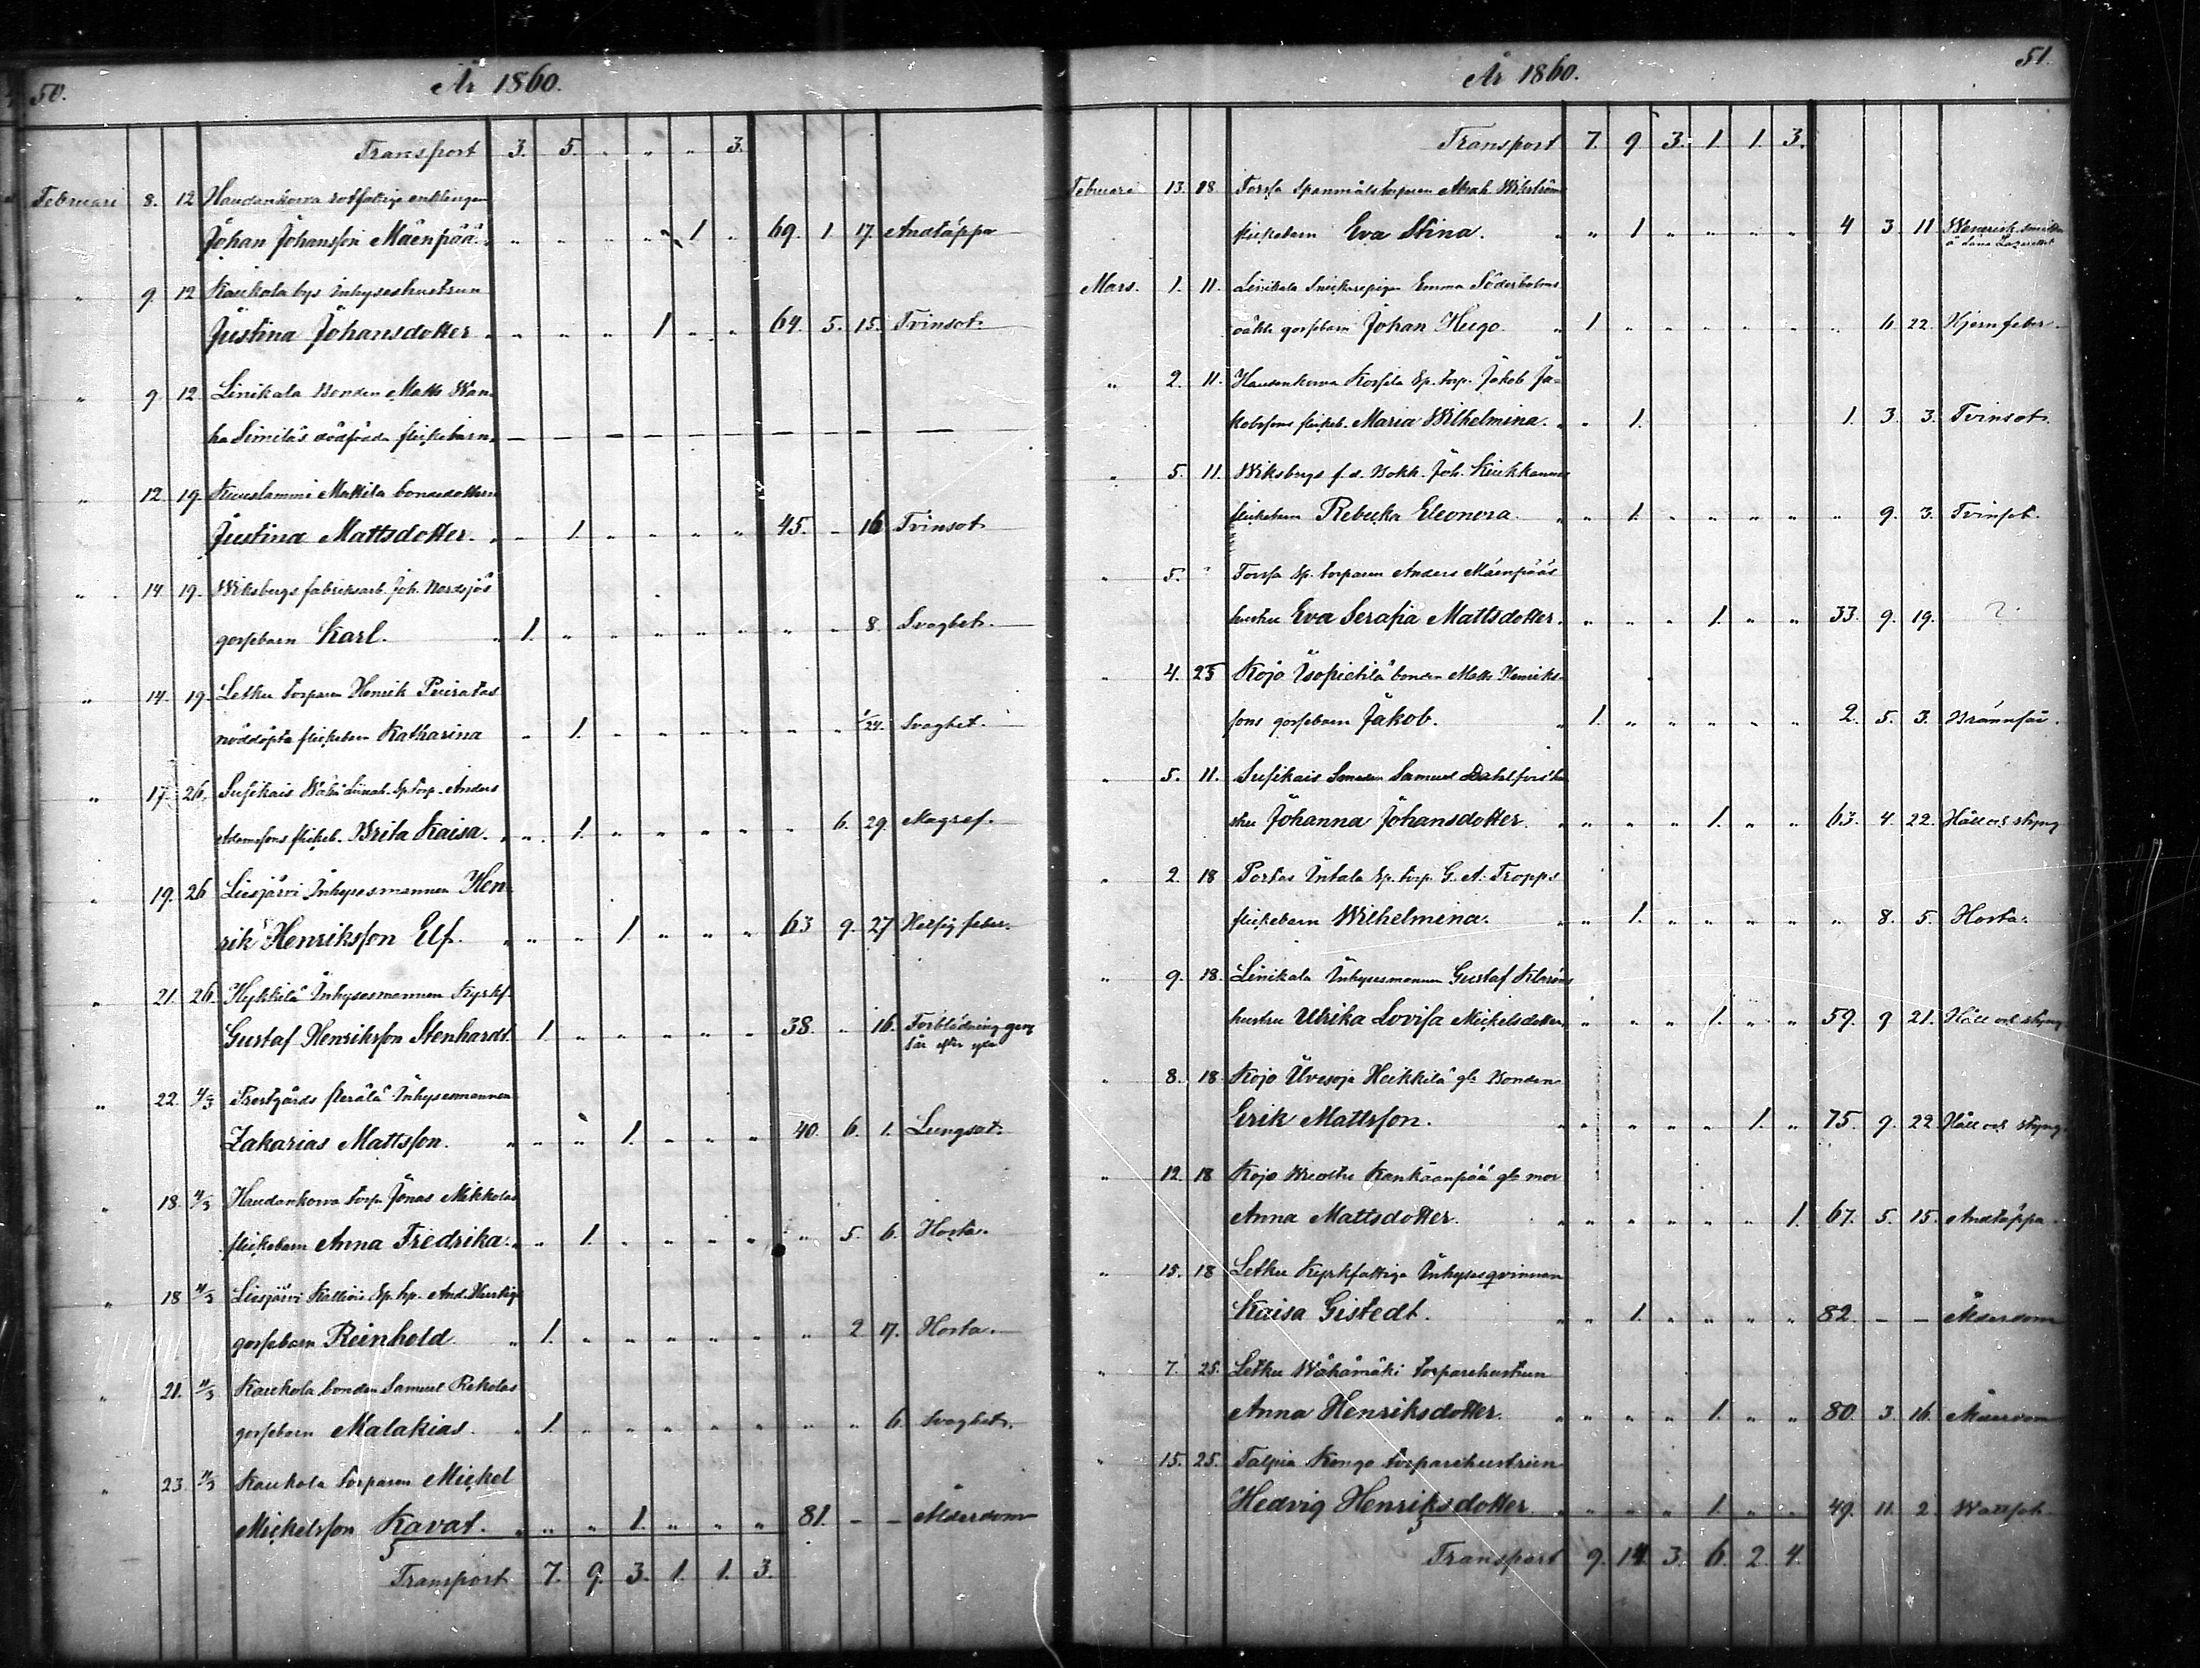 50.
År 1860.
Transport 3. 5. " " " 3.
Februari 8. 12 Haudankorva rotfattige enklingen
Johan Johansson Mäenpää. " " " " 1 " 69. 1. 17. Andtäppa
" 9. 12 Kaukola bys Inhyseshustrun
Justina Johansdotter " " " 1 " " 64. 5. 15. Tvinsot.
" 9 12. Linikala Bonden Matts Wan-
ha Similäs dödfödda flickebarn. — — — — — — — — —
" 12. 19. Kuuslammi Mattila bondedottren
Justina Mattsdotter. " 1. " " " " 45. - 16 Tvinsot
" 14 19. Wiksbergs fabriksarb. Joh. Nordsjös
gossebarn Karl. " 1. " " " " " " " 8. Svaghet.
" 14. 19. Letku torparen Henrik
nöddöpta flickebarn Katharina " 1. " " " " " " 1/24. Svaghet.
" 17. 26. Susikais Sp. torp. Anders
Adamssons flickeb. Brita Kaisa. " 1. " " " " " 6. 29. Magref.
" 19. 26 Liesjärvi Inhysesmannen Hen-
rik Henriksson Elf. " " " 1. " " " 63 9. 27 Hetsig feber.
" 21. 26. Hykkilä Inhysesmannen Kyrkf.
Gustaf Henriksson Stenhardt. 1. " " " " " 38. " 16. Förblödning
sår efter
" 22. 4/3 Prestgårds Inhysesmannen
Zakarias Mattsson. " " " 1. " " " 40. 6. 1. Lungsot.
" 18. 4/3 Haudankorva torp. Jonas Mikkolas
flickebarn Anna Fredrika. " 1. " " " " " 5. 6. Hosta.
" 18 4/3 Liesjärvi Sp. tp. And.
gossebarn Reinhold " 1. " " " " " " 2 17. Hosta.
" 21. 4/3 Kaukola bonden Samuel Rekolas
gossebarn Malakias. " 1. " " " " " " " 6. Svaghet.
" 23. 4/3 Kaukola torparen Mickel
Mickelsson Kavat. " " " 1. " " " 81. - - Ålderdom
Transport 7. 9. 3. 1. 1. 3.
51.
År 1860.
Transport 7. 9 3. 1. 1. 3.
Februari 13. 18 Forssa Spanmålstorparen Abrah. Wikström
flickebarn Eva Stina. " " 1 " " " " 4 3 11
Mars. 1. 11. Linikala Emma Söderholms
oäkta gossebarn Johan Hugo. " 1. " " " " " " 6 22. Hjernfeber.
" 2. 11. Haudankorva Korpela Sp. torp. Jakob Ja-
kobssons flickeb. Maria Wilhelmina. " " 1. 1. 3. 3. Tvinsot.
" 5. 11. Wiksbergs f. d. Bokh. Joh.
flickebarn Rebecka Eleonora. " " 1. " " " " " 9. 3. Tvinsot.
" 5. " Forssa Sp. torparen Anders Mäenpääs
hustru Eva Serafia Mattsdotter. " " " 1. " " 33. 9. 19. ?
" 4. 25 Kojo Isopietilä bonden Matts Henriks-
sons gossebarn Jakob. " 1. " " " " " 2. 5. 3. Brännsår.
" 5. 11. Susikais Smeden Samuel Dahlfors hu-
stru Johanna Johansdotter. " " " " 1. " " 63. 4. 22. Håll och styng
" 2. 18 Portas Intala Sp. torp. G. A. Tropps
flickebarn Wilhelmina. " " 1. " " " " " 8. 5. Hosta.
" 9. 18. Linikala Inhysesmannen Gustaf Klaréns
hustru Ulrika Lovisa Mickelsdotter. " " " " 1. " " 59. 9 21. Håll och styng
" 8. 18. Kojo Uvesoja Heikkilä gl. Bonden
Erik Mattsson. " " " " " 1. " 75. 9. 22 Håll och styng.
" 12. 18 Kojo Kankaanpää gl. mor
Anna Mattsdotter. " " " " " " 1. 67. 5. 15. Andtäppa.
" 15. 18 Letku Kyrkfattiga Inhysesqvinnan
Kaisa Gistedt. " " 1. " " " " 82. - - Ålderdom
" 7. 25. Letku Wähämäki torparehustrun
Anna Henriksdotter. " " " " 1. " " 80. 3. 16. Ålderdom
" 15. 25. Talpia Kongo torparehustrun
Hedvig Henriksdotter " " " " 1. " " 49. 11. 2. Wattsot.
Transport 9. 14. 3. 6. 2. 4.